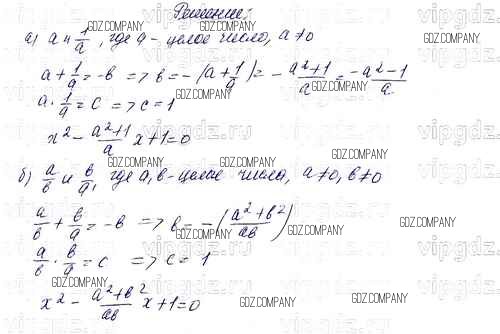 Решение:
а) a и 1/a, где a - целое число, a ≠ 0
a + 1/a = -в => в = -(a + 1/a) = - a²+1/a = -a²-1/a
a · 1/a = c => c = 1
x² - a²+1/a x + 1 = 0
б) a/в и в/a, где a, в - целое число, a ≠ 0, в ≠ 0
a/в + в/a = -в => в = -(a²+в²/aв)
a/в · в/a = c => c = 1
x² - a²+в²/aв x + 1 = 0
GDZ.COMPANY
vipgdz.ru